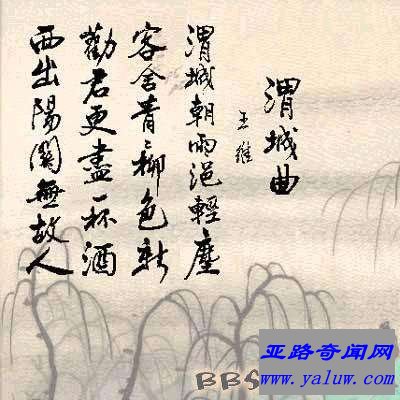 渭城曲
王维
渭城朝雨浥輕塵
客舍青〻柳色新
勸君更盡一杯酒
西出陽關無故人
亚路奇闻网
www.yaluw.com
BBS